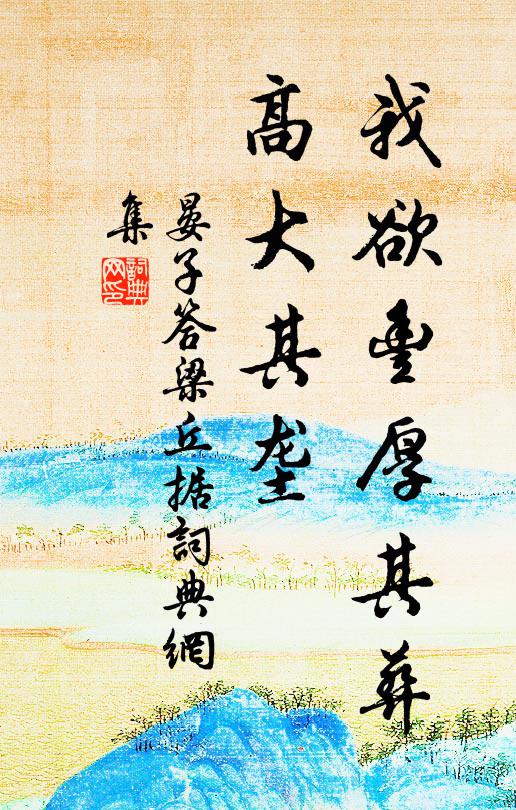 我欲豊厚其葬
高大其垄
晏子答梁丘据詞典網
集
詞典
网印